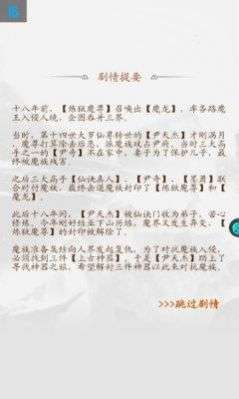 剧情提要
十八年前，【炼狱魔尊】召唤出【魔龙】，率各路魔
王入侵人境，企图吞并三界。
当时，第十四世大罗仙尊转世的【尹天杰】才刚满月
，魔尊打算除去后患，派魔族攻占尹府，当时三大高
手之一的【尹奇】不在家中，妻子为了保护儿子，最
终被魔族残害
此后三大高手【仙诀真人】、【尹奇】、【 】联
合对付魔族，最终在 魔族封印了【炼狱魔尊】和【
魔龙】。
此后十八年间，【尹天杰】被仙诀门收为弟子，苦心
修炼，今年刚好 下山历练。魔界又发生异变，【
炼狱魔尊】的封印被解除了。
魔族准备集结向人界发起复仇，为了对抗魔族入侵，
必须找到三件【上古神器】，于是【尹天杰】踏上了
寻找神器之旅，希望解封三件神器以此来对抗魔族。
>>>跳过剧情